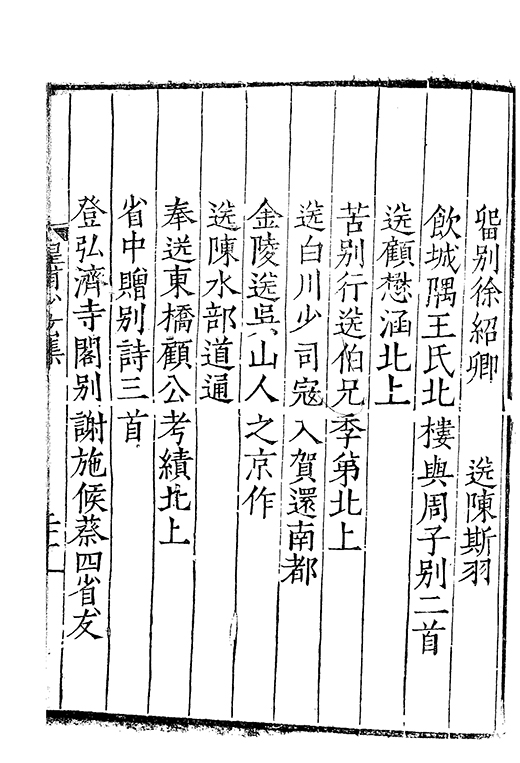 畱別徐紹卿　送陳斯羽
飲城隅王氏北樓與周子別二首
送顧懋涵北上
苦別行送伯兄季第北上
送白川少司寇入賀還南都
金陵送吳山人之京作
送陳水部道通
奉送東橋顧公考績北上
省中贈別詩三首
登弘濟寺閣別謝施候蔡四省友
皇甫少玄集